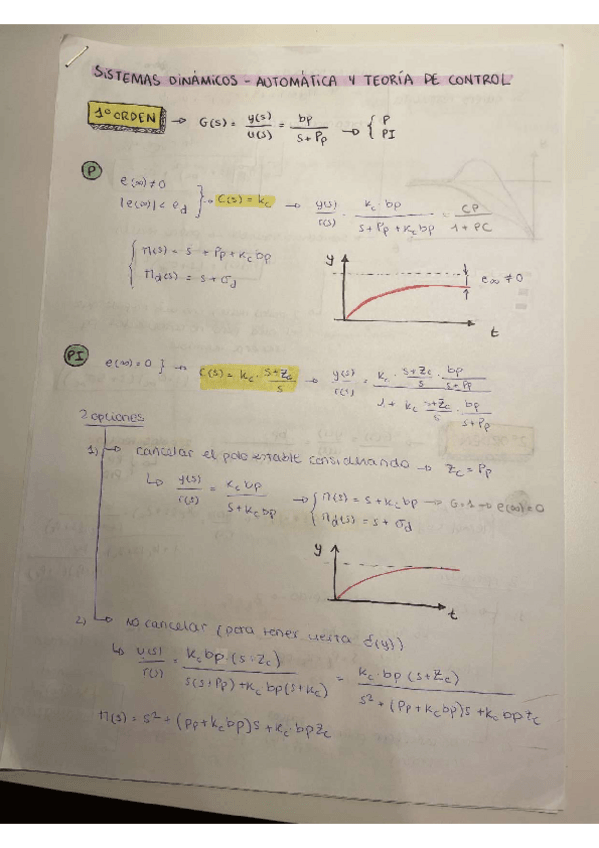 SISTEMAS DINÁMICOS - AUTOMÁTICA Y TEORÍA DE CONTROL
1º ORDEN → G(s) = y(s)/u(s) = bp/(s+Pp) → { P PI
P
e(∞) ≠ 0
|e(∞)| < e_d } → C(s) = k_c → y(s)/r(s) = k_c bp/(s+Pp+k_c bp) = CP/(1+PC)
{ Π(s) = s + Pp + k_c bp
Π_d(s) = s + σ_d
y
e∞ ≠ 0
t
PI e(∞) = 0 } → C(s) = k_c · (s+Z_c)/s → y(s)/r(s) = (k_c · (s+Z_c)/s · bp/(s+Pp))/(1 + k_c · (s+Z_c)/s · bp/(s+Pp))
2 opciones
1) → cancelar el polo estable considerando → Z_c = Pp
↳ y(s)/r(s) = k_c bp/(s+k_c bp) → { Π(s) = s + k_c bp → G=1 → e(∞)=0
Π_d(s) = s + σ_d
y
t
2) → No cancelar (para tener cierta δ(y))
↳ y(s)/r(s) = k_c bp · (s·Z_c)/(s(s+Pp)+k_c bp(s+k_c)) = k_c · bp · (s+Z_c)/(s² + (Pp+k_c bp)s + k_c bp Z_c)
Π(s) = s² + (Pp+k_c bp)s + k_c · bp Z_c